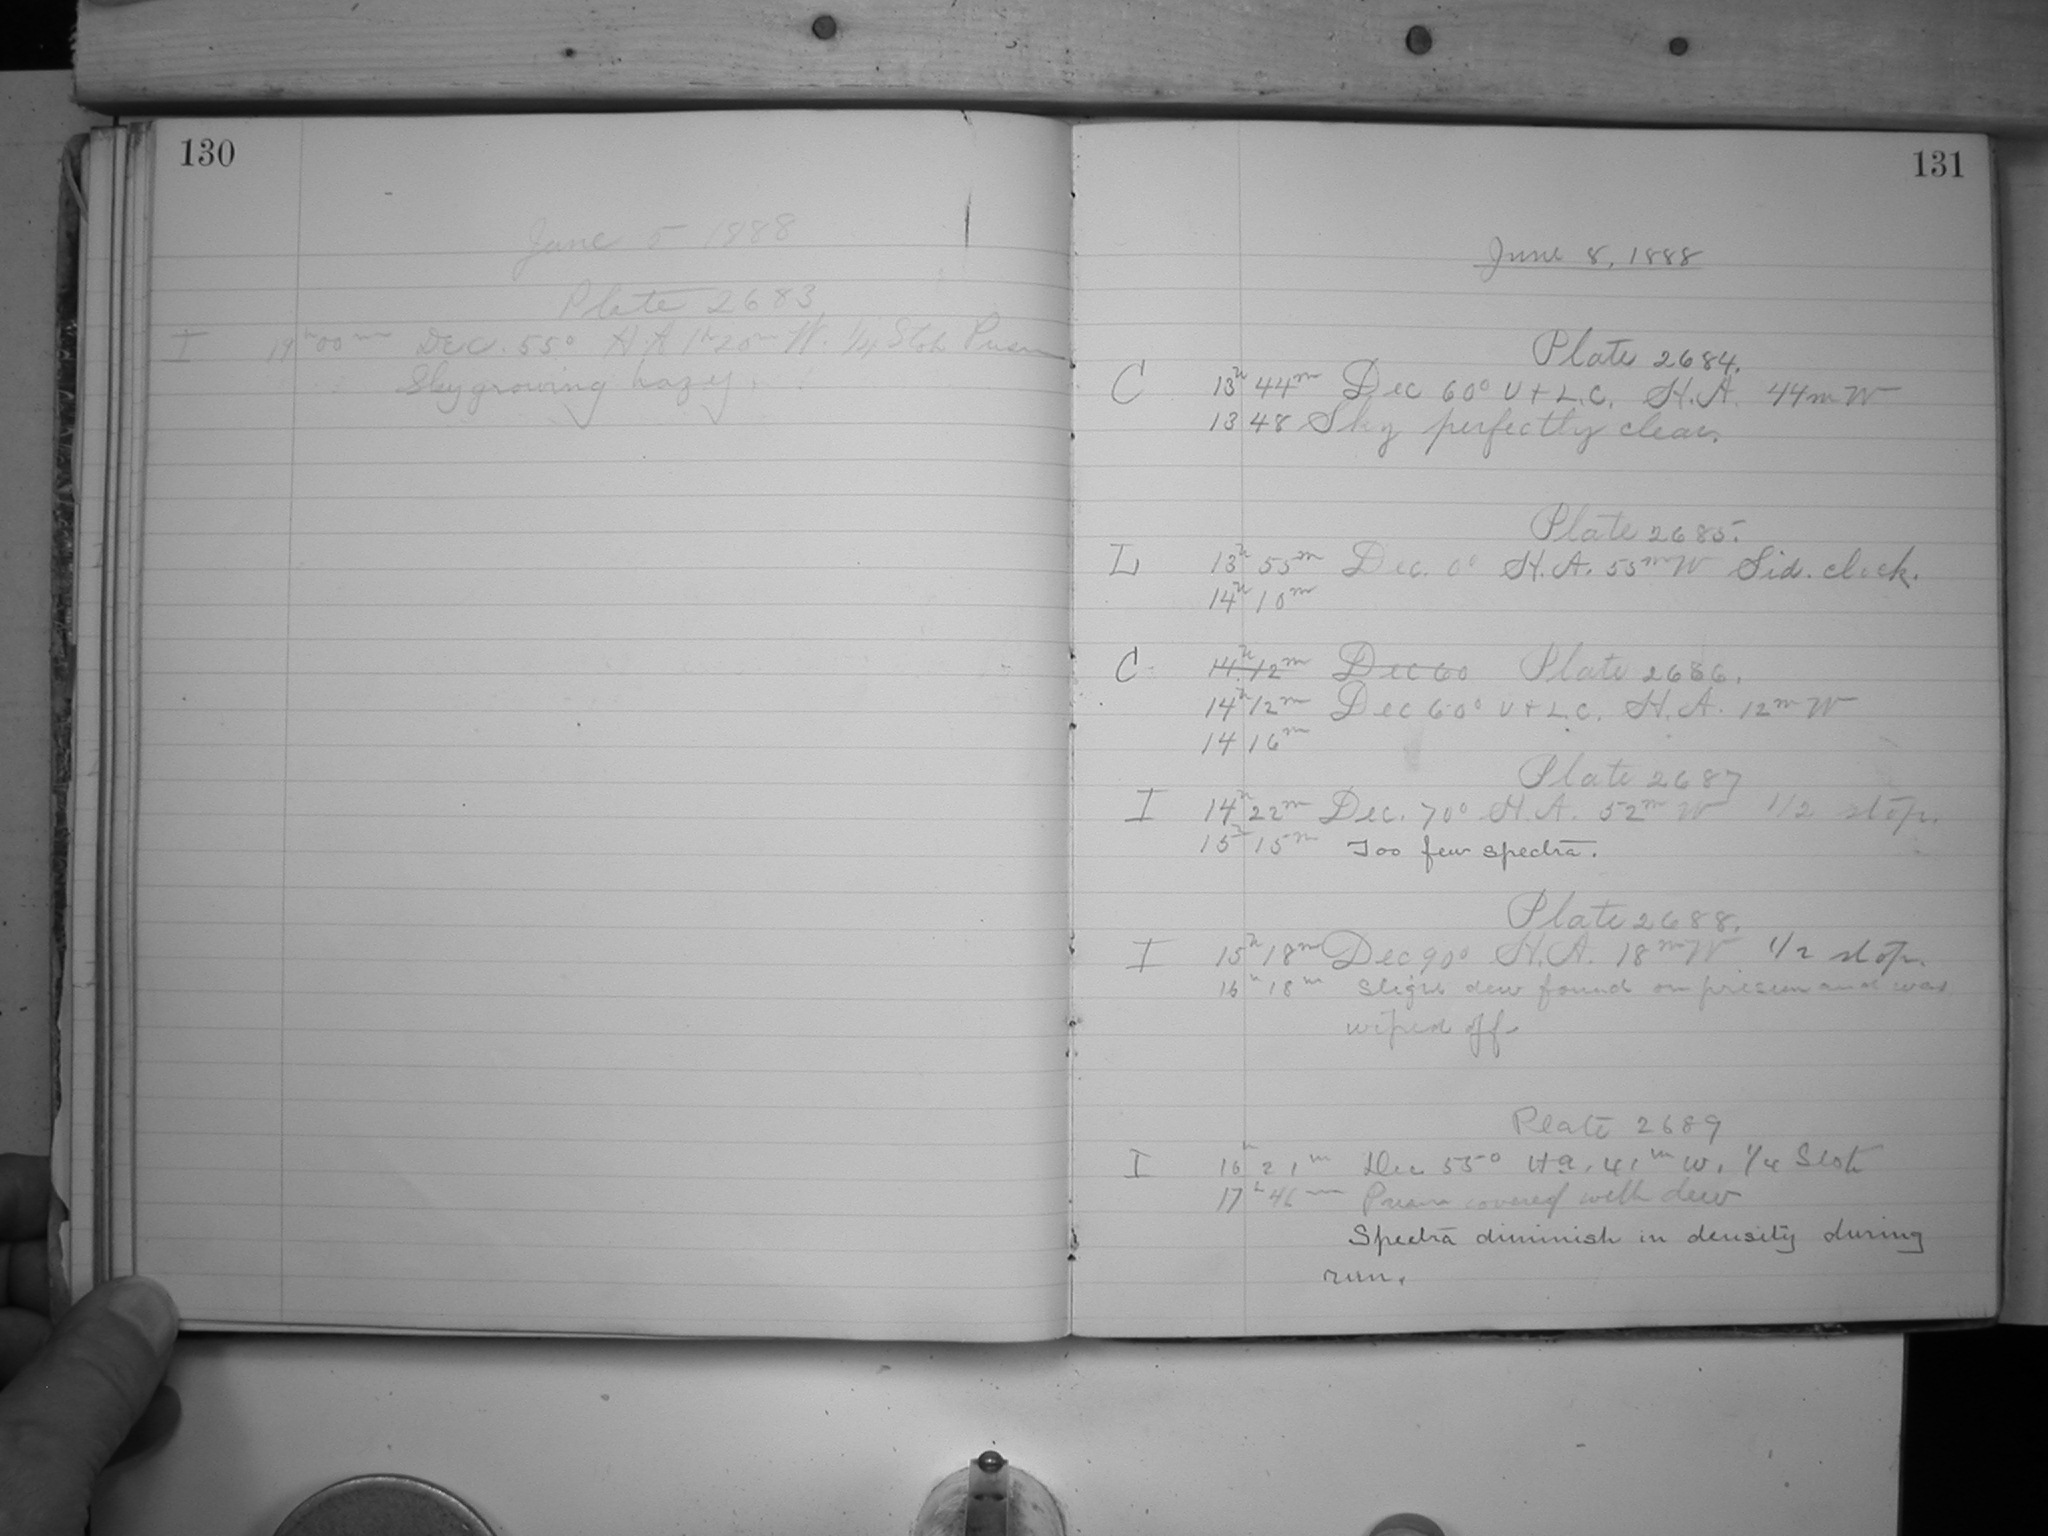 130
June 5 1888
Plate 2683
I 19h 00m Dec. 55° H A 1h 20m W. 1/4 Stop Prism
Sky growing hazy.
131
June 8, 1888
Plate 2684.
C 13h 44m Dec 60° U + L.C. H.A. 44m W
13 48 Sky perfectly clear.
Plate 2685.
L 13h 55m Dec. 0° H.A. 55m W Sid. clock.
14h 10m
C 14h 12m Dec 60 Plate 2686.
14h 12m Dec 60° U + L.C. H.A. 12m W
14 16m
Plate 2687
I 14h 22m Dec. 70° H.A. 52m W 1/2 stop.
15h 15m Too few spectra.
Plate 2688.
I 15h 18m Dec 90° H.A. 18m W 1/2 stop.
16h 18m Slight dew found on prism and was
wiped off.
Plate 2689
I 16h 21m Dec 55° H a. 41m W. 1/4 Stop
17h 46m Prism covered with dew
Spectra diminish in density during
run.